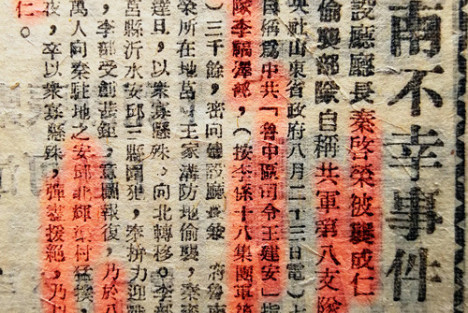 南不幸事件
設廳廳長秦啓榮被襲成仁
偷襲部隊自稱共軍第八支隊
央社山東省政府八月二十三日電)
自稱爲中共「魯中區司令王建安」指
隊李福澤部,(按李係十八集團軍
)三千餘,密向建設廳長秦
榮所在地萬丁王家溝防地偷襲,秦
達旦,以衆寡懸殊,向北轉移。李部
莒縣沂水安邱三縣圍犯,秦拚力迎
,李部受創甚鉅,意圖報復,乃於八
萬人向秦駐地之安邱北輝渠村猛撲,
夜,卒以衆寡懸殊,彈盡援絕,乃
仁。